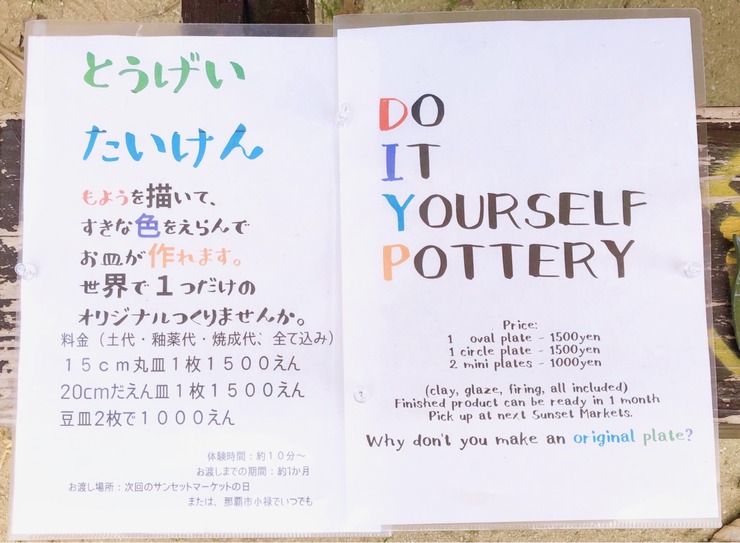 とうげい
たいけん
もようを描いて、
すきな色をえらんで
お皿が作れます。
世界で1つだけの
オリジナルつくりませんか。
料金（土代・釉薬代・焼成代、全て込み）
15cm丸皿1枚1500えん
20cmだえん皿1枚1500えん
豆皿2枚で1000えん
体験時間：約10分～
お渡しまでの期間：約1か月
お渡し場所：次回のサンセットマーケットの日
または、那覇市小禄でいつでも
DO
IT
YOURSELF
POTTERY
Price:
1 oval plate - 1500yen
1 circle plate - 1500yen
2 mini plates - 1000yen
(clay, glaze, firing, all included)
Finished product can be ready in 1 month
Pick up at next Sunset Markets.
Why don't you make an original plate?